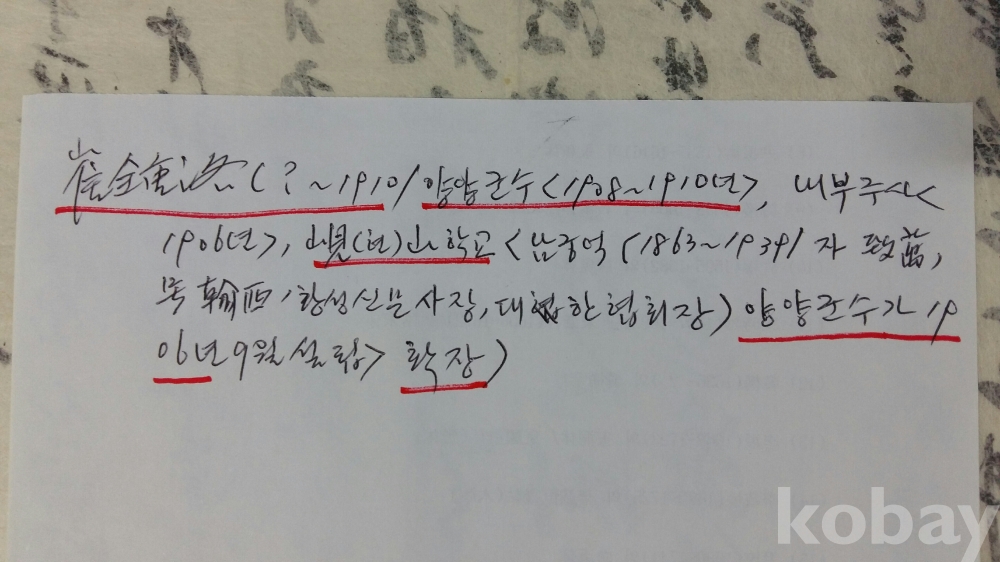 崔鍾洛(?~1910/양양군수<1908~1910년>, 내부주사<
1906년>, 峴(현)山학교<남궁억(1863~1939/자 致萬,
号 翰西, 황성신문사장, 대한협회장) 양양군수가 19
06년 9월 설립> 확장)
kobay